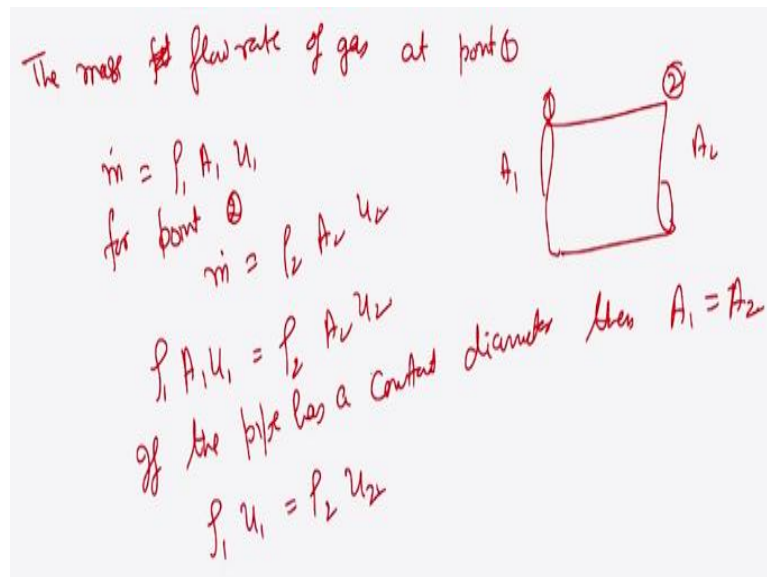 The mass flow rate of gas at point ①
ṁ = ρ₁ A₁ u₁
for point ②
ṁ = ρ₂ A₂ u₂
ρ₁ A₁ u₁ = ρ₂ A₂ u₂
If the pipe has a constant diameter then A₁ = A₂
ρ₁ u₁ = ρ₂ u₂
①
②
A₁
A₂